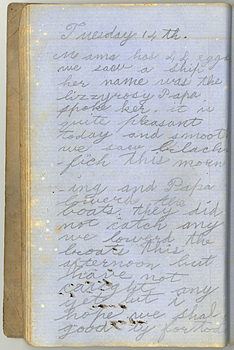 Tuesday 14th.
Mama has 22 eggs
we saw a ship
her name was the
lizzyrosy Papa
spoke her. it is
quite pleasant
today and smooth
we saw blach
-fich this morn
-ing and Papa
lowerd the
boats. they did
not catch any
we lowerd the
boats this
afternoon but
have not
caught any
yet but i
hope we shal
good by for tod